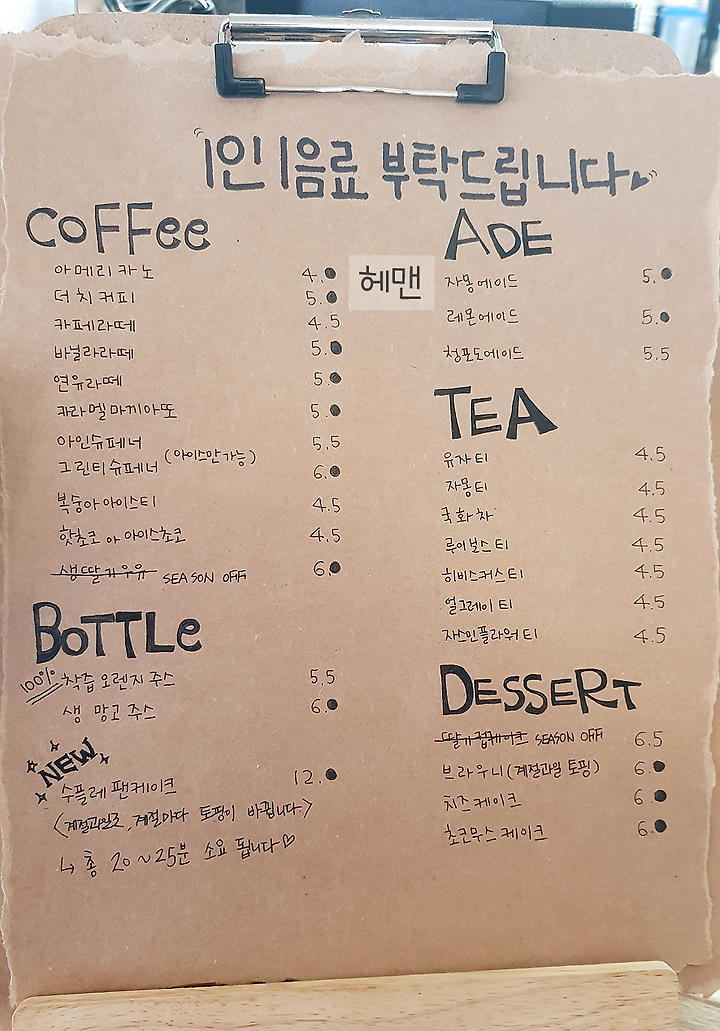 1인 1음료 부탁드립니다
COFFee
아메리카노 4.●
더치커피 5.●
카페라떼 4.5
바닐라라떼 5.●
연유라떼 5.●
카라멜마끼아또 5.●
아인슈페너 5.5
그린티슈페너 (아이스만가능) 6.●
복숭아아이스티 4.5
핫초코 or 아이스초코 4.5
생딸기우유 SEASON OFF 6.●
BoTTLe
100% 착즙오렌지주스 5.5
생 망고 주스 6.●
NEW
수플레 팬케이크 12.●
<계절과일로, 계절마다 토핑이 바뀝니다>
↳ 총 20~25분 소요 됩니다♡
헤맨
ADE
자몽에이드 5.●
레몬에이드 5.●
청포도에이드 5.5
TEA
유자티 4.5
자몽티 4.5
국화차 4.5
루이보스티 4.5
히비스커스티 4.5
얼그레이티 4.5
자스민플라워티 4.5
DESSERT
딸기컵케이크 SEASON OFF 6.5
브라우니(계절과일 토핑) 6.●
치즈케이크 6.●
초코무스 케이크 6.●